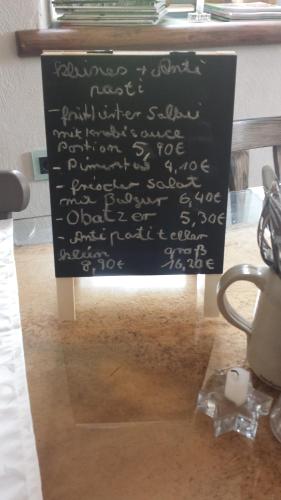 kleines + Anti
pasti
- frittierter Salbei
mit Knobisauce
Portion 5,90€
- Pimentos 4,10€
- frischer Salat
mit Balzur 6,40€
- Obatzer 5,30€
- Antipastiteller
klein groß
8,90€ 16,20€